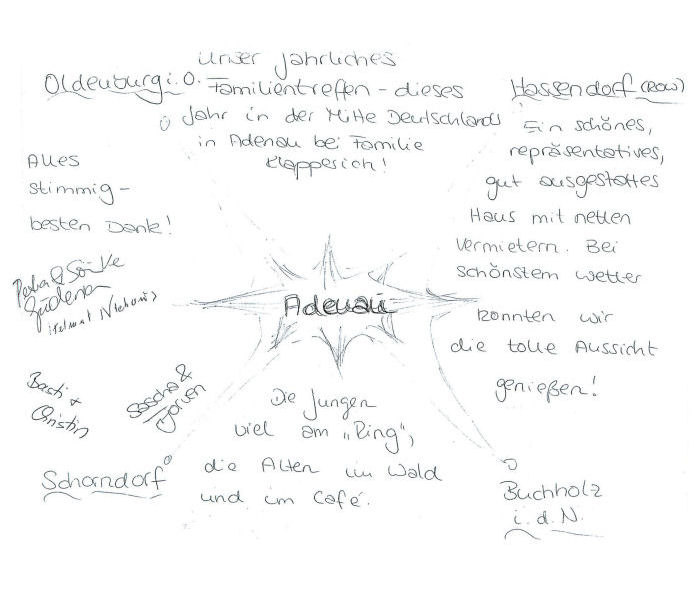 unser jährliches
Oldenburg i. O.
Familientreffen - dieses
Jahr in der Mitte Deutschlands
in Adenau bei Familie
Klappesich!
Hassendorf (ROW)
Ein schönes,
repräsentatives,
gut ausgestattes
Haus mit netten
Vermietern. Bei
schönstem Wetter
konnten wir
die tolle Aussicht
genießen!
Alles
stimmig -
besten Dank!
& Sönke
Adenau
Basti &
Christin
Sascha &
Die Jungen
viel am „Ring",
die Alten im Wald
und im Café.
Schorndorf
Buchholz
i. d. N.